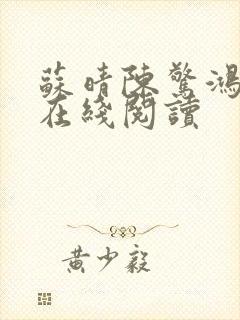 蘇晴陳驚鴻
在綫閱讀
黃少毅